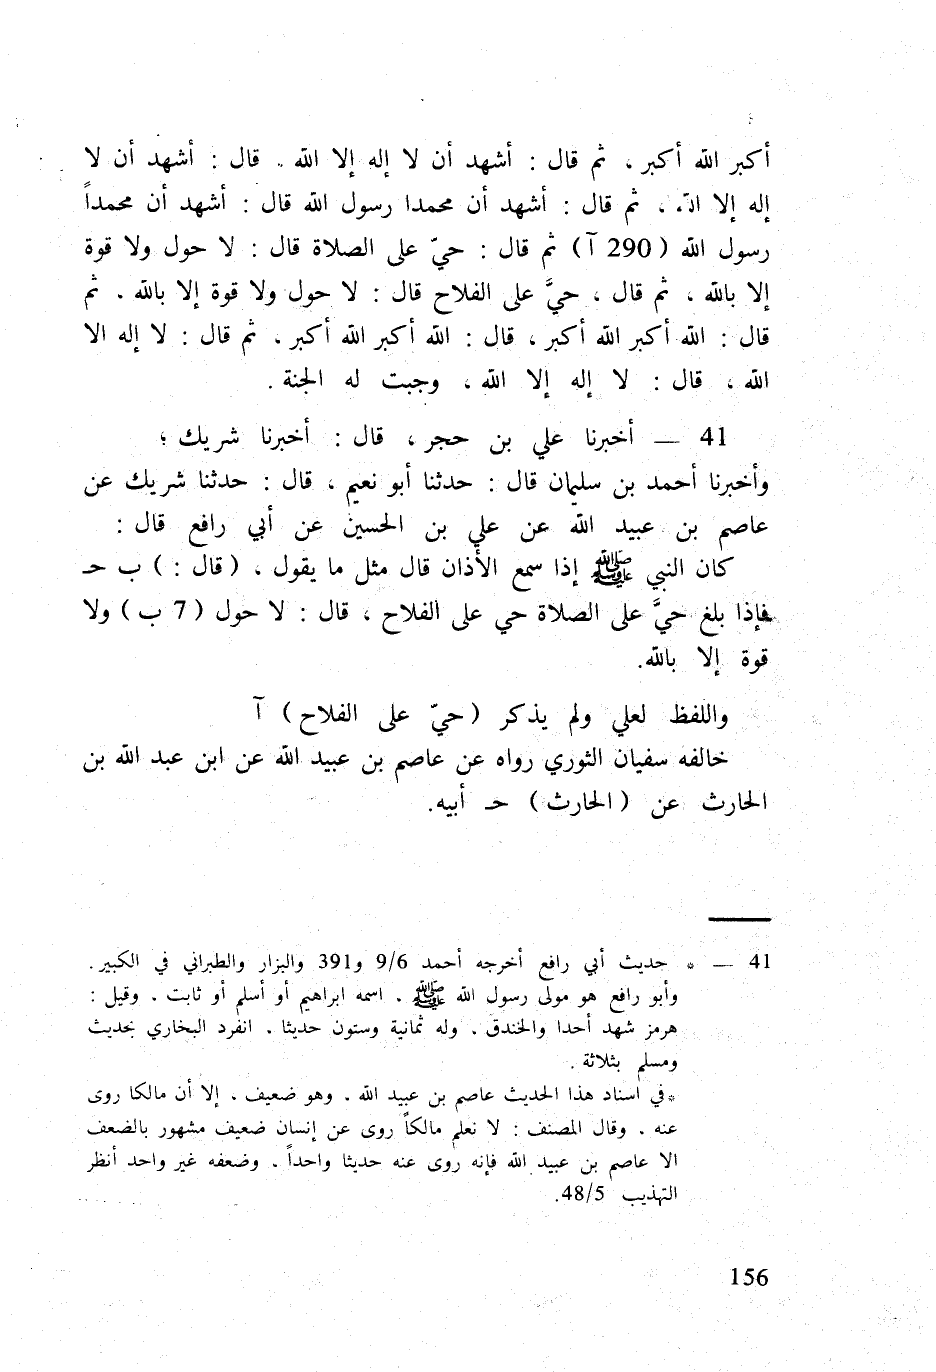 أكبر الله أكبر ، ثم قال : أشهد أن لا إله إلا الله .. قال : أشهد أن لا
إله إلا الله ، ثم قال : أشهد أن محمدا رسول الله قال : أشهد أن محمداً
رسول الله ( 290 آ ) ثم قال : حيّ على الصلاة قال : لا حول ولا قوة
إلا بالله ، ثم قال ، حيَّ على الفلاح قال : لا حول ولا قوة إلا بالله . ثم
قال : الله أكبر الله أكبر ، قال : الله أكبر الله أكبر ، ثم قال : لا إله الا
الله ، قال : لا إله إلا الله ، وجبت له الجنة .
41 — أخبرنا علي بن حجر ، قال : أخبرنا شريك ؛
وأخبرنا أحمد بن سليمان قال : حدثنا أبو نعيم ، قال : حدثنا شريك عن
عاصم بن عبيد الله عن علي بن الحسين عن أبي رافع قال :
كان النبي ﷺ إذا سمع الأذان قال مثل ما يقول ، ( قال : ) ب حـ
فإذا بلغ حيَّ على الصلاة حي على الفلاح ، قال : لا حول ( 7 ب ) ولا
قوة إلا بالله.
واللفظ لعلي ولم يذكر ( حيّ على الفلاح ) آ
خالفه سفيان الثوري رواه عن عاصم بن عبيد الله عن ابن عبد الله بن
الحارث عن ( الحارث ) حـ أبيه.
41 — * حديث أبي رافع أخرجه أحمد 9/6 و391 والبزار والطبراني في الكبير .
وأبو رافع هو مولى رسول الله ﷺ . اسمه ابراهيم أو أسلم أو ثابت . وقيل :
هرمز شهد أحدا والخندق . وله ثمانية وستون حديثا . انفرد البخاري بحديث
ومسلم بثلاثة .
*في اسناد هذا الحديث عاصم بن عبيد الله . وهو ضعيف . إلا أن مالكا روى
عنه . وقال المصنف : لا نعلم مالكاً روى عن إنسان ضعيف مشهور بالضعف
الا عاصم بن عبيد الله فإنه روى عنه حديثا واحداً . وضعفه غير واحد أنظر
التهذيب 48/5.
156